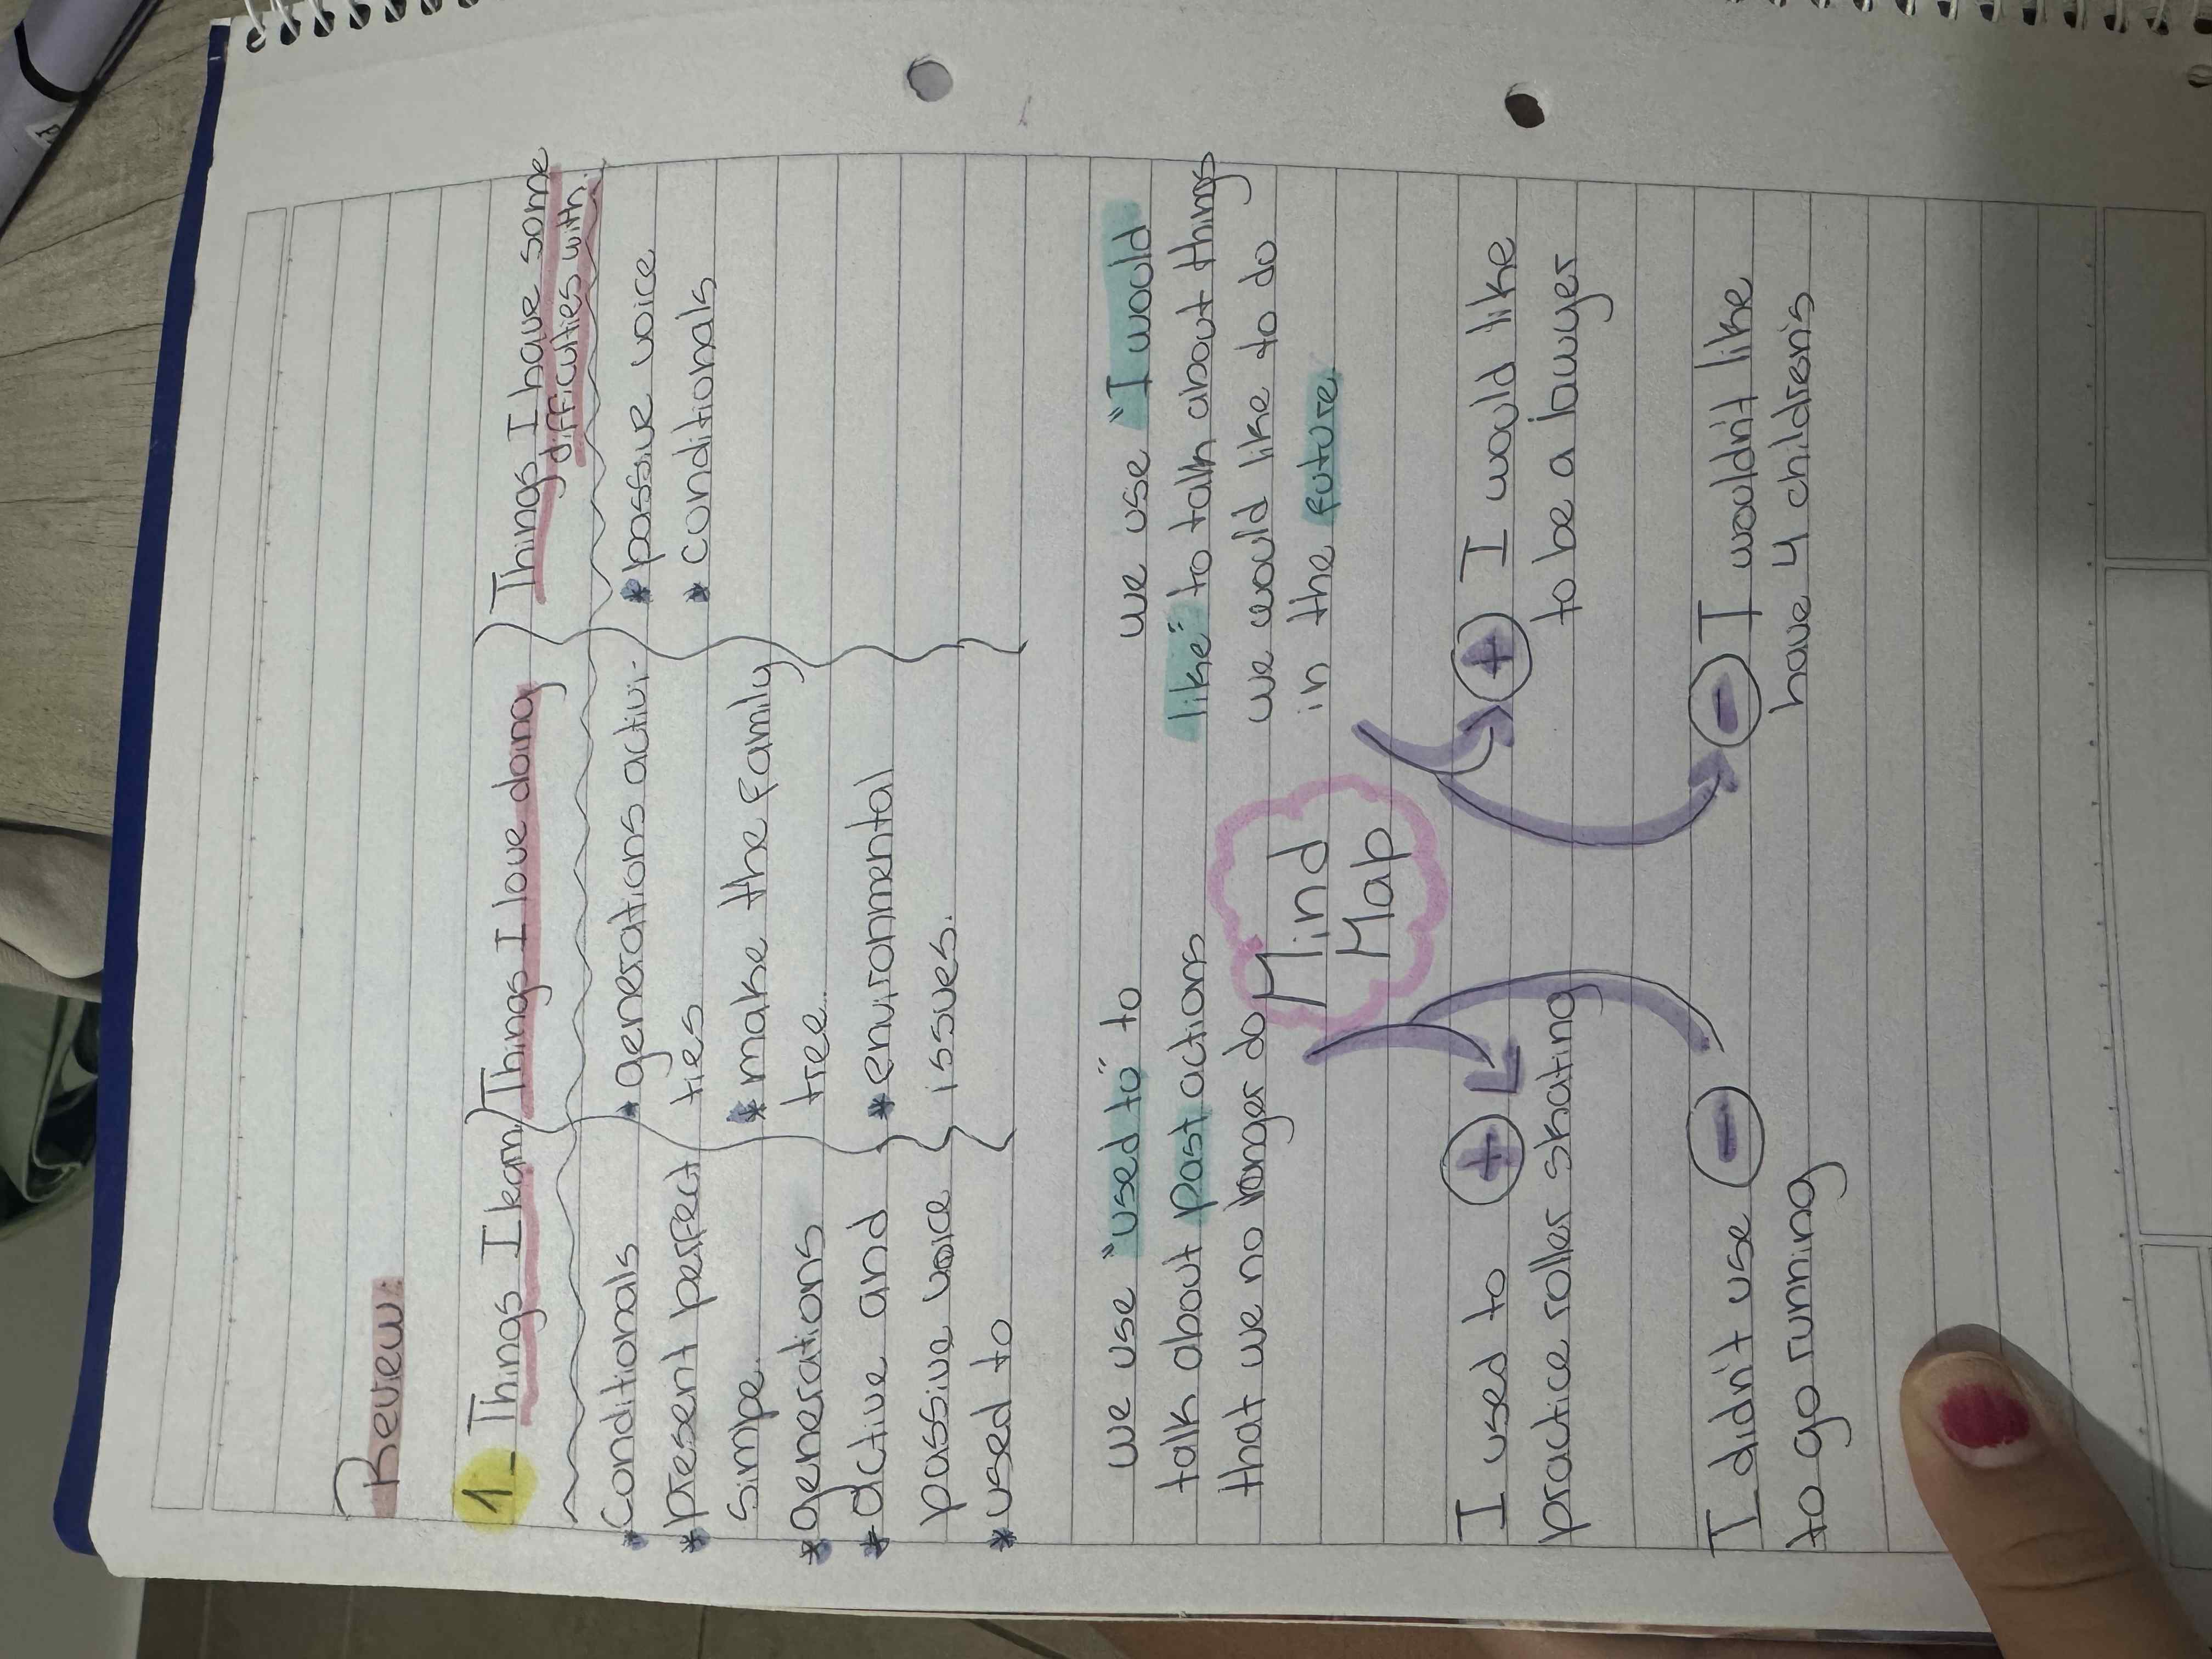 Review:
1- Things I kan
* conditionals
* present perfect
simpe
* generations
* active and
passive voice
* used to
Things I love doing
* generations activi-
ties
* make the family
tree
* environmental
issues.
Things I have some
difficulties with.
* passive voice
* conditionals
we use "used to" to
talk about past actions
that we no longer do
Mind
Map
we use "I would
like" to talk about things
we would like to do
in the future.
+
I used to
practice roller skating
-
I didn't use
to go running
+ I would like
to be a lawyer
- I wouldn't like
have 4 childrens